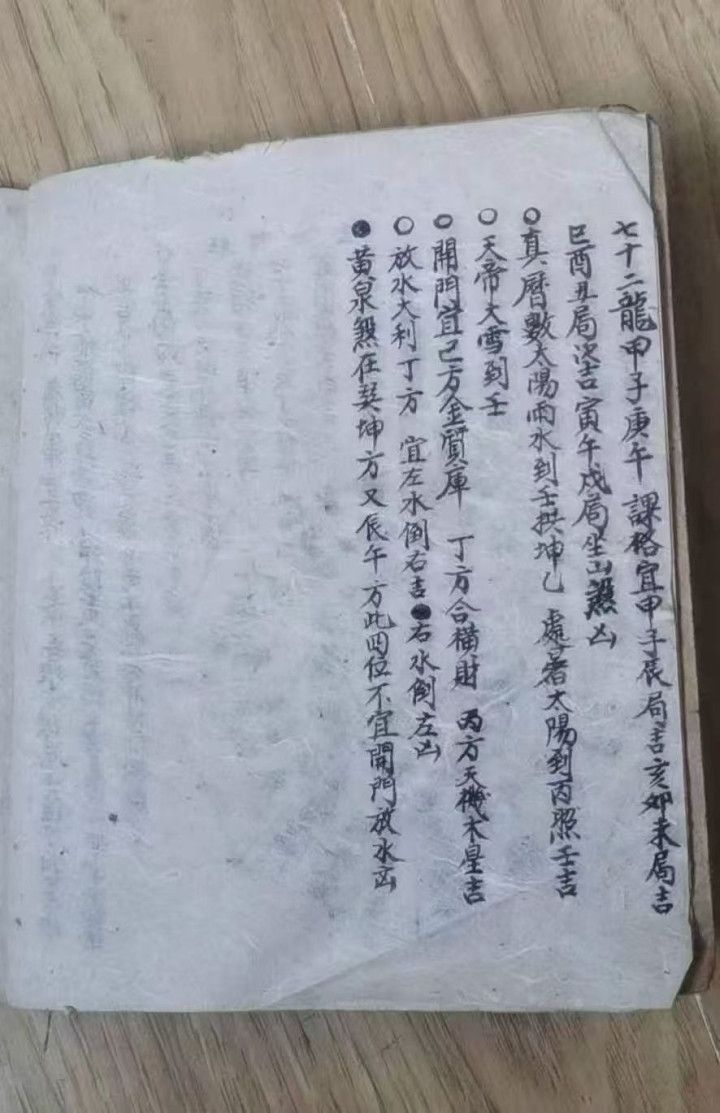 七十二龍甲子庚午　課格宜甲子辰局吉亥卯未局吉
巳酉丑局次吉寅午戍局坐山煞凶
○真曆數太陽雨水到壬拱坤乙　處暑太陽到丙照壬吉
○天帝大雪到壬
○開門宜己方金質庫　丁方合橫財　丙方天機木星吉
○放水大利丁方　宜左水倒右吉●右水倒左凶
●黃泉煞在癸坤方又辰午方此四位不宜開門放水凶